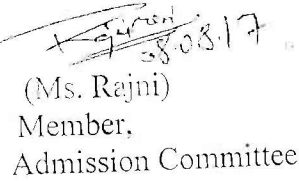 Rajni
08.08.17
(Ms. Rajni)
Member,
Admission Committee